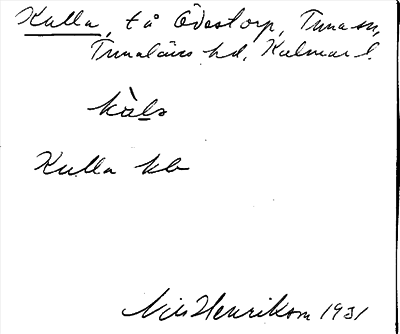 Kulla, t å Ödestorp, Tuna sn,
Tunaläns hd, Kalmar l.
kùla
Kulla kb
Nils Henrikson 1931